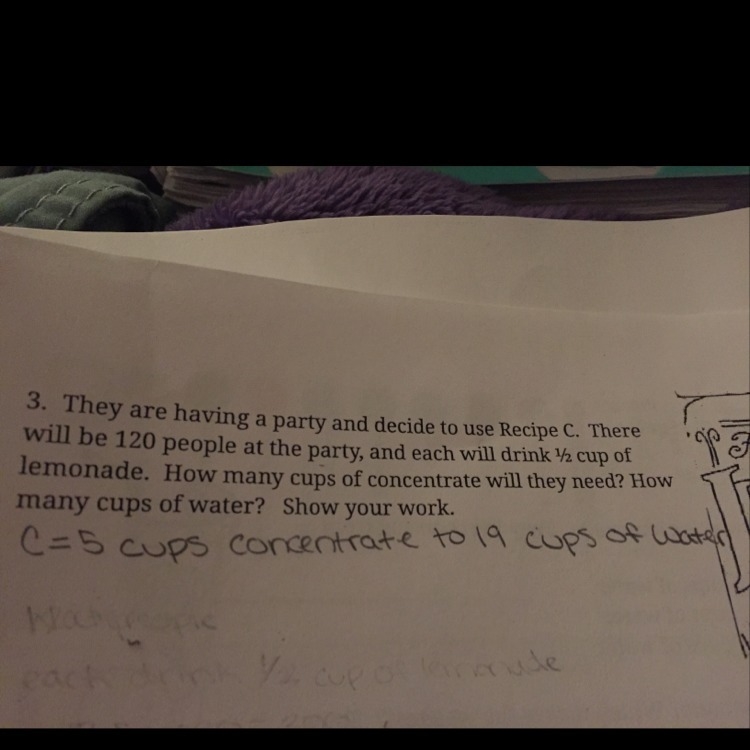 3. They are having a party and decide to use Recipe C. There
will be 120 people at the party, and each will drink ½ cup of
lemonade. How many cups of concentrate will they need? How
many cups of water? Show your work.
C=5 cups concentrate to 19 cups of water
each drink ½ cup of lemonade